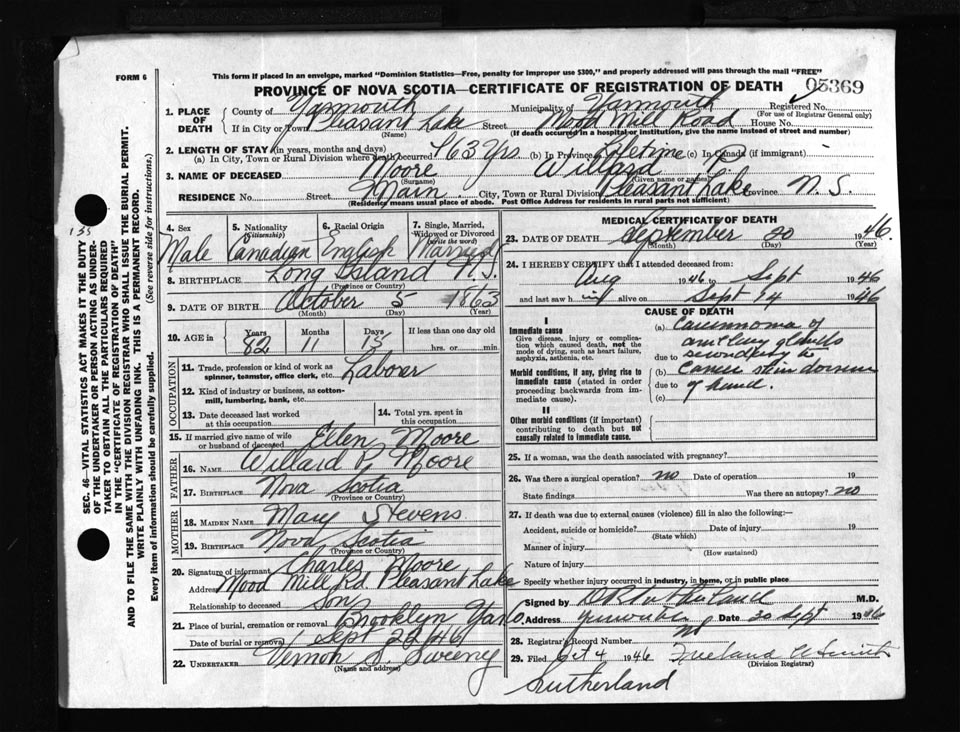 This form if placed in an envelope, marked "Dominion Statistics—Free, penalty for improper use $300," and properly addressed will pass through the mail "FREE"
FORM 6
PROVINCE OF NOVA SCOTIA—CERTIFICATE OF REGISTRATION OF DEATH
05369
1. PLACE OF DEATH
County of Yarmouth Municipality of Yarmouth Registered No.
(For use of Registrar General only)
If in City or Town Pleasant Lake Street Mood Mill Road House No.
(Name) (If death occurred in a hospital or institution, give the name instead of street and number)
2. LENGTH OF STAY (in years, months and days)
(a) In City, Town or Rural Division where death occurred 63 Yrs (b) In Province Lifetime (c) In Canada (if immigrant)
3. NAME OF DECEASED Moore Willard P.
(Surname) (Given name or names)
RESIDENCE No. Street Main City, Town or Rural Division Pleasant Lake Province N. S.
(Residence means usual place of abode. Post Office Address for residents in rural parts not sufficient)
4. Sex
Male
5. Nationality (Citizenship)
Canadian
6. Racial Origin
English
7. Single, Married, Widowed or Divorced (write the word)
Married
8. BIRTHPLACE Long Island N.S.
(Province or Country)
9. DATE OF BIRTH October 5 1863
(Month) (Day) (Year)
10. AGE in
Years Months Days If less than one day old
82 11 15 hrs. or min.
OCCUPATION
11. Trade, profession or kind of work as spinner, teamster, office clerk, etc. Laborer
12. Kind of industry or business, as cotton-mill, lumbering, bank, etc.
13. Date deceased last worked at this occupation
14. Total yrs. spent in this occupation
15. If married give name of wife or husband of deceased Ellen Moore
FATHER
16. NAME Willard P. Moore
17. BIRTHPLACE Nova Scotia
(Province or Country)
MOTHER
18. MAIDEN NAME Mary Stevens
19. BIRTHPLACE Nova Scotia
(Province or Country)
20. Signature of informant Charles Moore
Address Mood Mill Rd. Pleasant Lake
Relationship to deceased son
21. Place of burial, cremation or removal Brooklyn Yar Co.
Date of burial or removal Sept 22/46
22. UNDERTAKER Vernon S. Sweeny
(Name and address)
MEDICAL CERTIFICATE OF DEATH
23. DATE OF DEATH September 20 1946.
(Month) (Day) (Year)
24. I HEREBY CERTIFY that I attended deceased from:
Aug 1946 to Sept 1946
and last saw him alive on Sept 14 1946
CAUSE OF DEATH
I
Immediate cause
Give disease, injury or complication which caused death, not the mode of dying, such as heart failure, asphyxia, asthenia, etc.
(a) Carcinoma of
glands
due to secondary to
Morbid conditions, if any, giving rise to immediate cause (stated in order proceeding backwards from immediate cause).
(b) Cancer skin dorsum
due to of hand.
(c)
II
Other morbid conditions (if important) contributing to death but not causally related to immediate cause.
25. If a woman, was the death associated with pregnancy?
26. Was there a surgical operation? no Date of operation 19
State findings Was there an autopsy? no
27. If death was due to external causes (violence) fill in also the following:—
Accident, suicide or homicide? Date of injury 19
(State which)
Manner of injury
(How sustained)
Nature of injury
Specify whether injury occurred in industry, in home, or in public place
Signed by Sutherland M.D.
Address Date 20 Sept 1946
28. Registrar's Record Number
29. Filed Oct 4 1946 Freeland
(Division Registrar)
Sutherland
SEC. 46—VITAL STATISTICS ACT MAKES IT THE DUTY
OF THE UNDERTAKER OR PERSON ACTING AS UNDER-
TAKER TO OBTAIN ALL THE PARTICULARS REQUIRED
IN THE "CERTIFICATE OF REGISTRATION OF DEATH"
AND TO FILE THE SAME WITH THE DIVISION REGISTRAR WHO SHALL ISSUE THE BURIAL PERMIT.
WRITE PLAINLY WITH UNFADING INK. THIS IS A PERMANENT RECORD.
Every item of information should be carefully supplied. (See reverse side for instructions.)